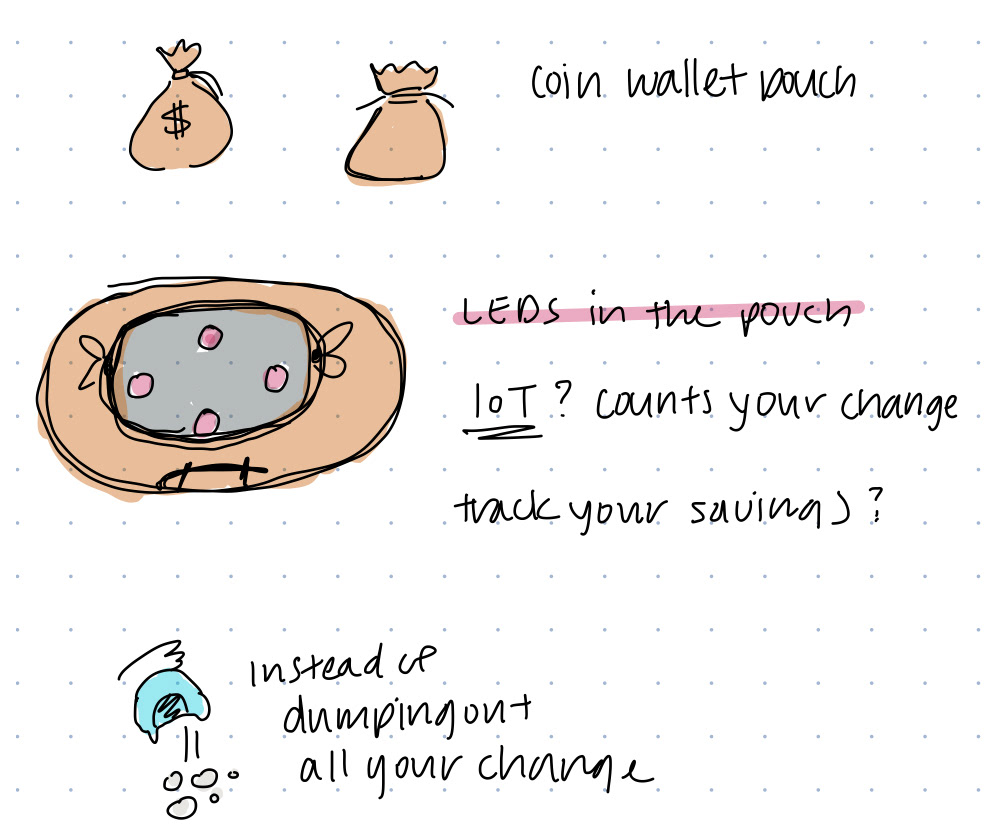 $
coin wallet pouch
LEDS in the pouch
IoT? counts your change
track your savings?
instead of
dumping out
all your change